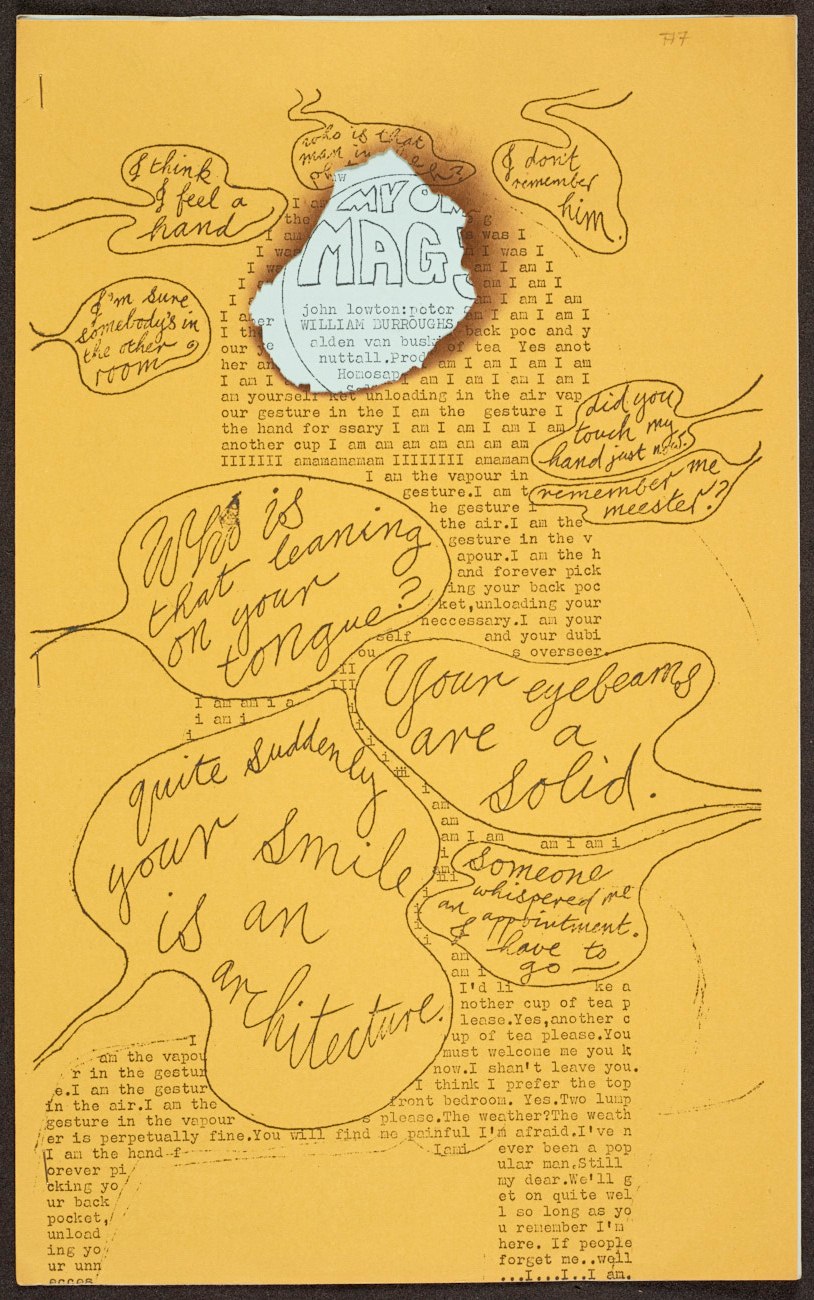 777
who is that
man in the
I think
I feel a
hand
I don't
remember
him.
MY OWN
MAG
I'm sure
somebody's in
the other
room
john lowton:potor
WILLIAM BURROUGHS
alden van busk
nuttall.Prod
Homosap
s was I
I was I
am I am I
am I am I
am I am I am
am I am I am I
back poc and y
of tea Yes anot
am I am I am I am
am I am I am I am I
I am
I th
our
her an
I am I
am yourself ket unloading in the air vap
our gesture in the I am the gesture I
the hand for ssary I am I am I am I am
another cup I am am am am am am am
IIIIIII amamamamam IIIIIIII amamam
did you
touch my
hand just now.
remember me
meester?
I am the vapour in
gesture.I am t
he gesture i
the air.I am the
gesture in the v
apour.I am the h
and forever pick
ing your back poc
ket,unloading your
neccessary.I am your
self and your dubi
ou s overseer.
Who is
that leaning
on your
tongue?
II
III
I am am i a
i am i
i
Your eyebeams
are a
solid.
quite suddenly
your smile
is an
architecture.
i
am
am
am I am am i am i
someone
whispered me
an appointment.
I have to
go
am
am i
I'd li ke a
nother cup of tea p
lease.Yes,another c
up of tea please.You
must welcome me you k
now.I shan't leave you.
I think I prefer the top
front bedroom. Yes.Two lump
s please.The weather?The weath
I
am the vapou
r in the gestur
e.I am the gestur
in the air.I am the
gesture in the vapour
er is perpetually fine.You will find me painful I'm afraid.I've n
I am the hand f Iami ever been a pop
orever pi
cking yo
ur back
pocket,
unload
ing yo
ur unn
ecces
ular man.Still
my dear.We'll g
et on quite wel
l so long as yo
u remember I'm
here. If people
forget me..well
...I...I..I am.